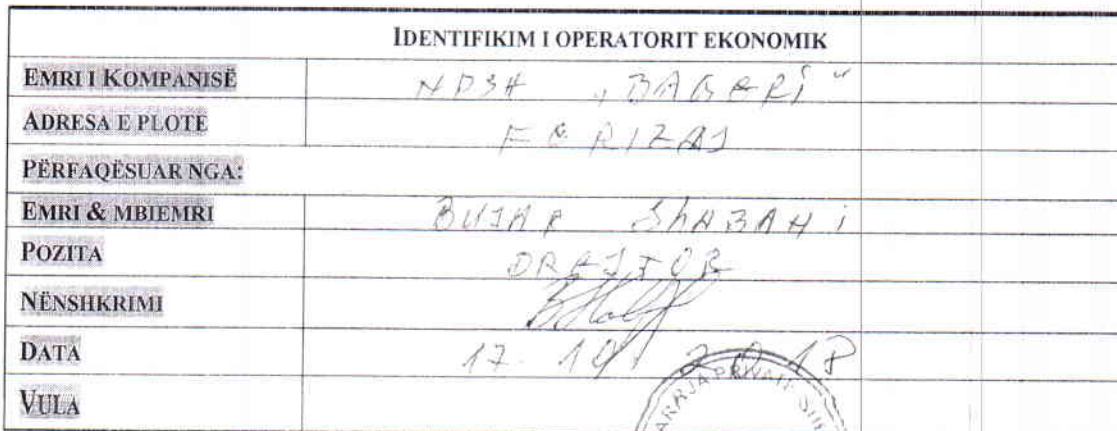 IDENTIFIKIM I OPERATORIT EKONOMIK
EMRI I KOMPANISË NDSH „BAGERI“
ADRESA E PLOTË FERIZAJ
PËRFAQËSUAR NGA:
EMRI & MBIEMRI BUJAR SHABANI
POZITA DREJTOR
NËNSHKRIMI
DATA 17.10.2018
VULA